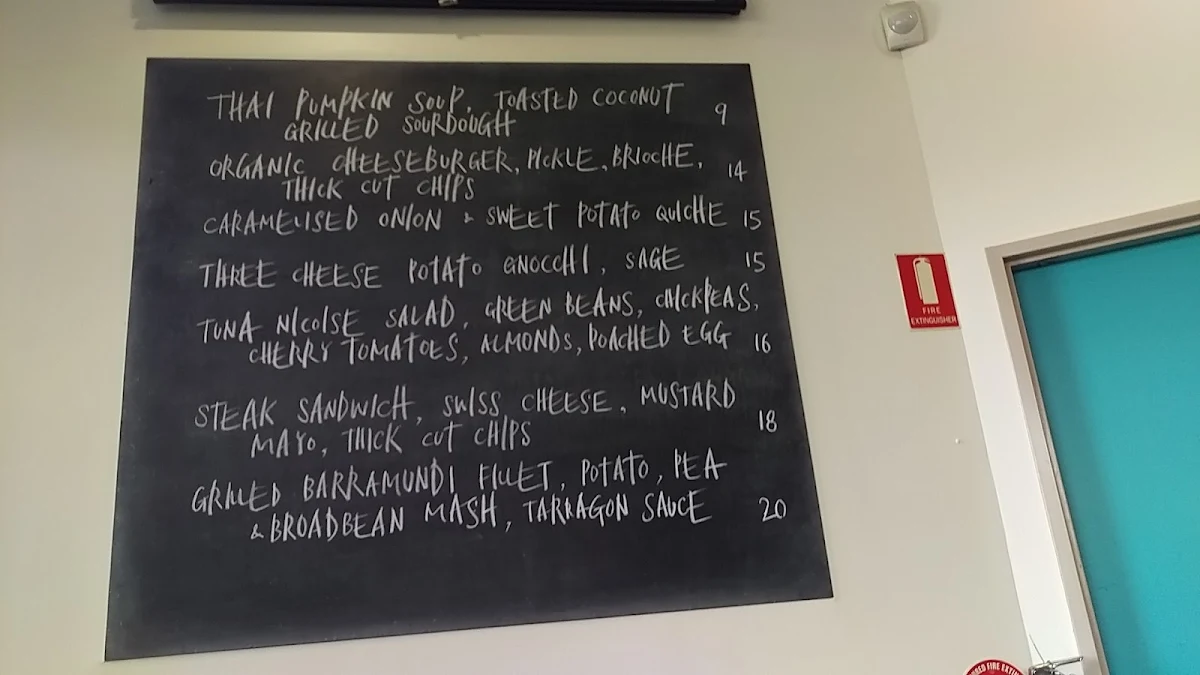 THAI PUMPKIN SOUP, TOASTED COCONUT
GRILLED SOURDOUGH 9
ORGANIC CHEESEBURGER, PICKLE, BRIOCHE,
THICK CUT CHIPS 14
CARAMELISED ONION & SWEET POTATO QUICHE 15
THREE CHEESE POTATO GNOCCHI, SAGE 15
TUNA NICOISE SALAD, GREEN BEANS, CHICKPEAS,
CHERRY TOMATOES, ALMONDS, POACHED EGG 16
STEAK SANDWICH, SWISS CHEESE, MUSTARD
MAYO, THICK CUT CHIPS 18
GRILLED BARRAMUNDI FILLET, POTATO, PEA
& BROADBEAN MASH, TARRAGON SAUCE 20
FIRE
EXTINGUISHER
FIRE